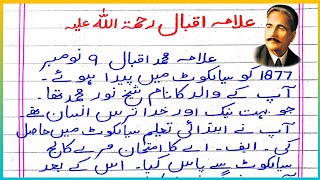 علامہ اقبال رحمۃ اللہ علیہ
علامہ محمد اقبال ۹ نومبر
1877 کو سیالکوٹ میں پیدا ہوئے۔
آپ کے والد کا نام شیخ نور محمد تھا۔
جو بہت نیک اور خدا ترس انسان تھے۔
آپ نے ابتدائی تعلیم سیالکوٹ میں حاصل
کی۔ ایف۔ اے کا امتحان مرے کالج
سیالکوٹ سے پاس کیا۔ اس کے بعد